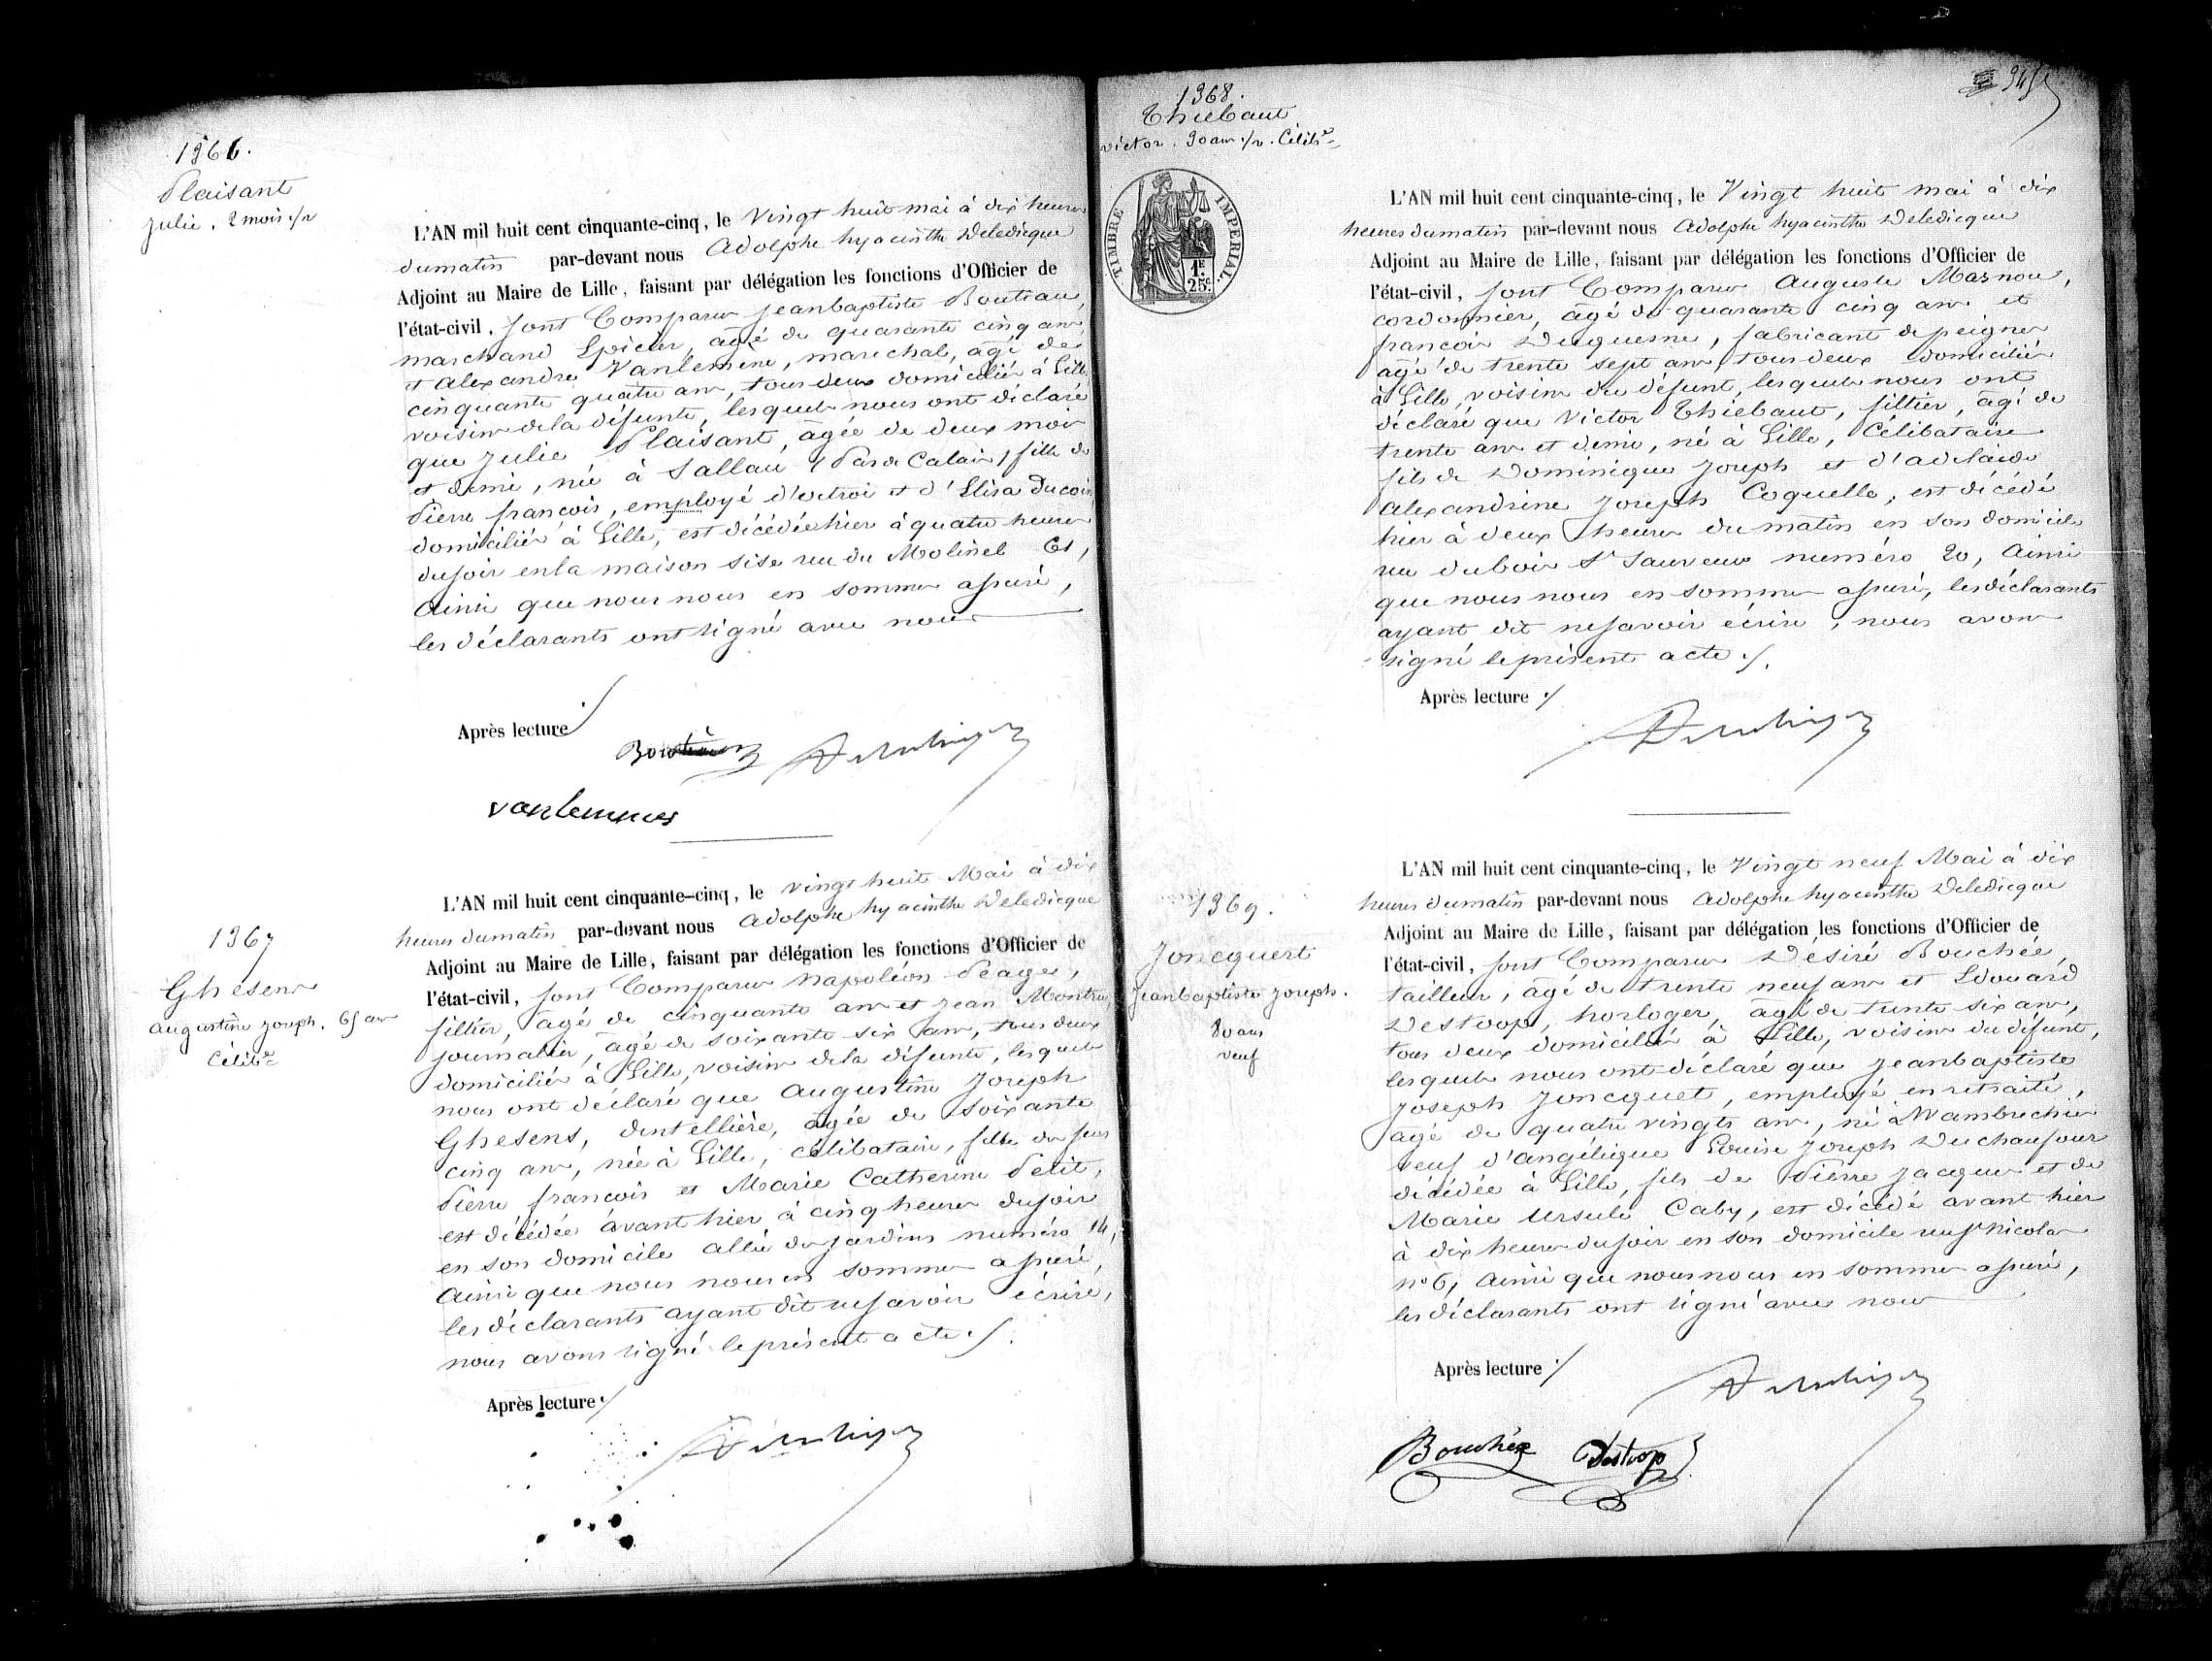 1366.
Plaisant
Julie. 2 mois 1/2
L'AN mil huit cent cinquante-cinq, le Vingt huit mai à dix heures
dumatin par-devant nous Adolphe hyacinthe Deledicque
Adjoint au Maire de Lille, faisant par délégation les fonctions d'Officier de
l'état-civil, sont Comparus Jeanbaptiste Bouteau,
marchand Epicier, âgé de quarante cinq ans
et alexandre Vanlemene, marechal, âgé de
cinquante quatre ans, tous deux domiciliés à Lille
voisins dela défunte, lesquels nous ont déclaré
que Julie Plaisant, âgée de deux mois
et demi, née à Sallau (Pas de Calais) fille de
Pierre françois, employé d'octroi et d'Elisa Ducoin
domiciliés à Lille, est décédée hier à quatre heures
dusoir enla maison sise rue du Molinel 61,
Ainsi que nous nous en sommes assuré,
les déclarants ont signé avec nous
Après lecture
vanlemmes
1367
Ghesens
augustine joseph. 65 ans
Célibre
L'AN mil huit cent cinquante-cinq, le vingt huit Mai à dix
heures dumatin par-devant nous Adolphe hyacinthe Deledicque
Adjoint au Maire de Lille, faisant par délégation les fonctions d'Officier de
l'état-civil, sont Comparus Napoléon Péage,
filtier, âgé de cinquante ans et Jean
journalier, âgé de soixante six ans, tous deux
domiciliés à Lille, voisins dela défunte, lesquels
nous ont déclaré que Augustine Joseph
Ghesens, dentellière, âgée de soixante
cinq ans, née à Lille, célibataire, fille de feus
Pierre françois et Marie Catherine Petit,
est décédée avant hier à cinq heures dusoir
en son domicile allée des jardins numéro 14,
Ainsi que nous nous en sommes assuré,
les déclarants ayant dit nesavoir écrire,
nous avons signé leprésent acte ./.
Après lecture ./
1368.
Thiebaut
victor. 30 ans 1/2. Célibre
TIMBRE IMPERIAL.
1F.
25c.
L'AN mil huit cent cinquante-cinq, le Vingt huit mai à dix
heures dumatin par-devant nous Adolphe hyacinthe Deledicque
Adjoint au Maire de Lille, faisant par délégation les fonctions d'Officier de
l'état-civil, sont Comparus Auguste Masnou,
cordonnier, âgé de quarante cinq ans et
françois Duquesne, fabricant de peignes
âgé de trente sept ans, tous deux domiciliés
à Lille, voisins du défunt, lesquels nous ont
déclaré que Victor Thiebaut, filtier, âgé de
trente ans et demi, né à Lille, Célibataire
fils de Dominique Joseph et d'adelaïde
alexandrine Joseph Coquelle, est décédé
hier à deux heures du matin en son domicile
rue dubois St Sauveur numéro 20, Ainsi
que nous nous en sommes assuré, lesdéclarants
ayant dit nesavoir écrire, nous avons
signé leprésent acte ./.
Après lecture ./
1369.
Joncquert
Jeanbaptiste joseph.
80 ans
veuf
L'AN mil huit cent cinquante-cinq, le Vingt neuf Mai à dix
heures dumatin par-devant nous Adolphe hyacinthe Deledicque
Adjoint au Maire de Lille, faisant par délégation les fonctions d'Officier de
l'état-civil, sont Comparus Désiré Bouchée,
tailleur, âgé de trente neuf ans et Edouard
Destoop, horloger, âgé de trente six ans,
tous deux domiciliés à Lille, voisins du défunt,
lesquels nous ont déclaré que Jeanbaptiste
Joseph Joncquet, employé en retraite,
âgé de quatre vingts ans, né à Wambrechies
veuf d'angélique Louise Joseph Duchaufour
décédée à Lille, fils de Pierre Jacques et de
Marie Ursule Caby, est décédé avant hier
à dix heures dusoir en son domicile rue St Nicolas
no 6, Ainsi que nous nous en sommes assuré,
les déclarants ont signé avec nous
Après lecture ./
Bouchée Destoop